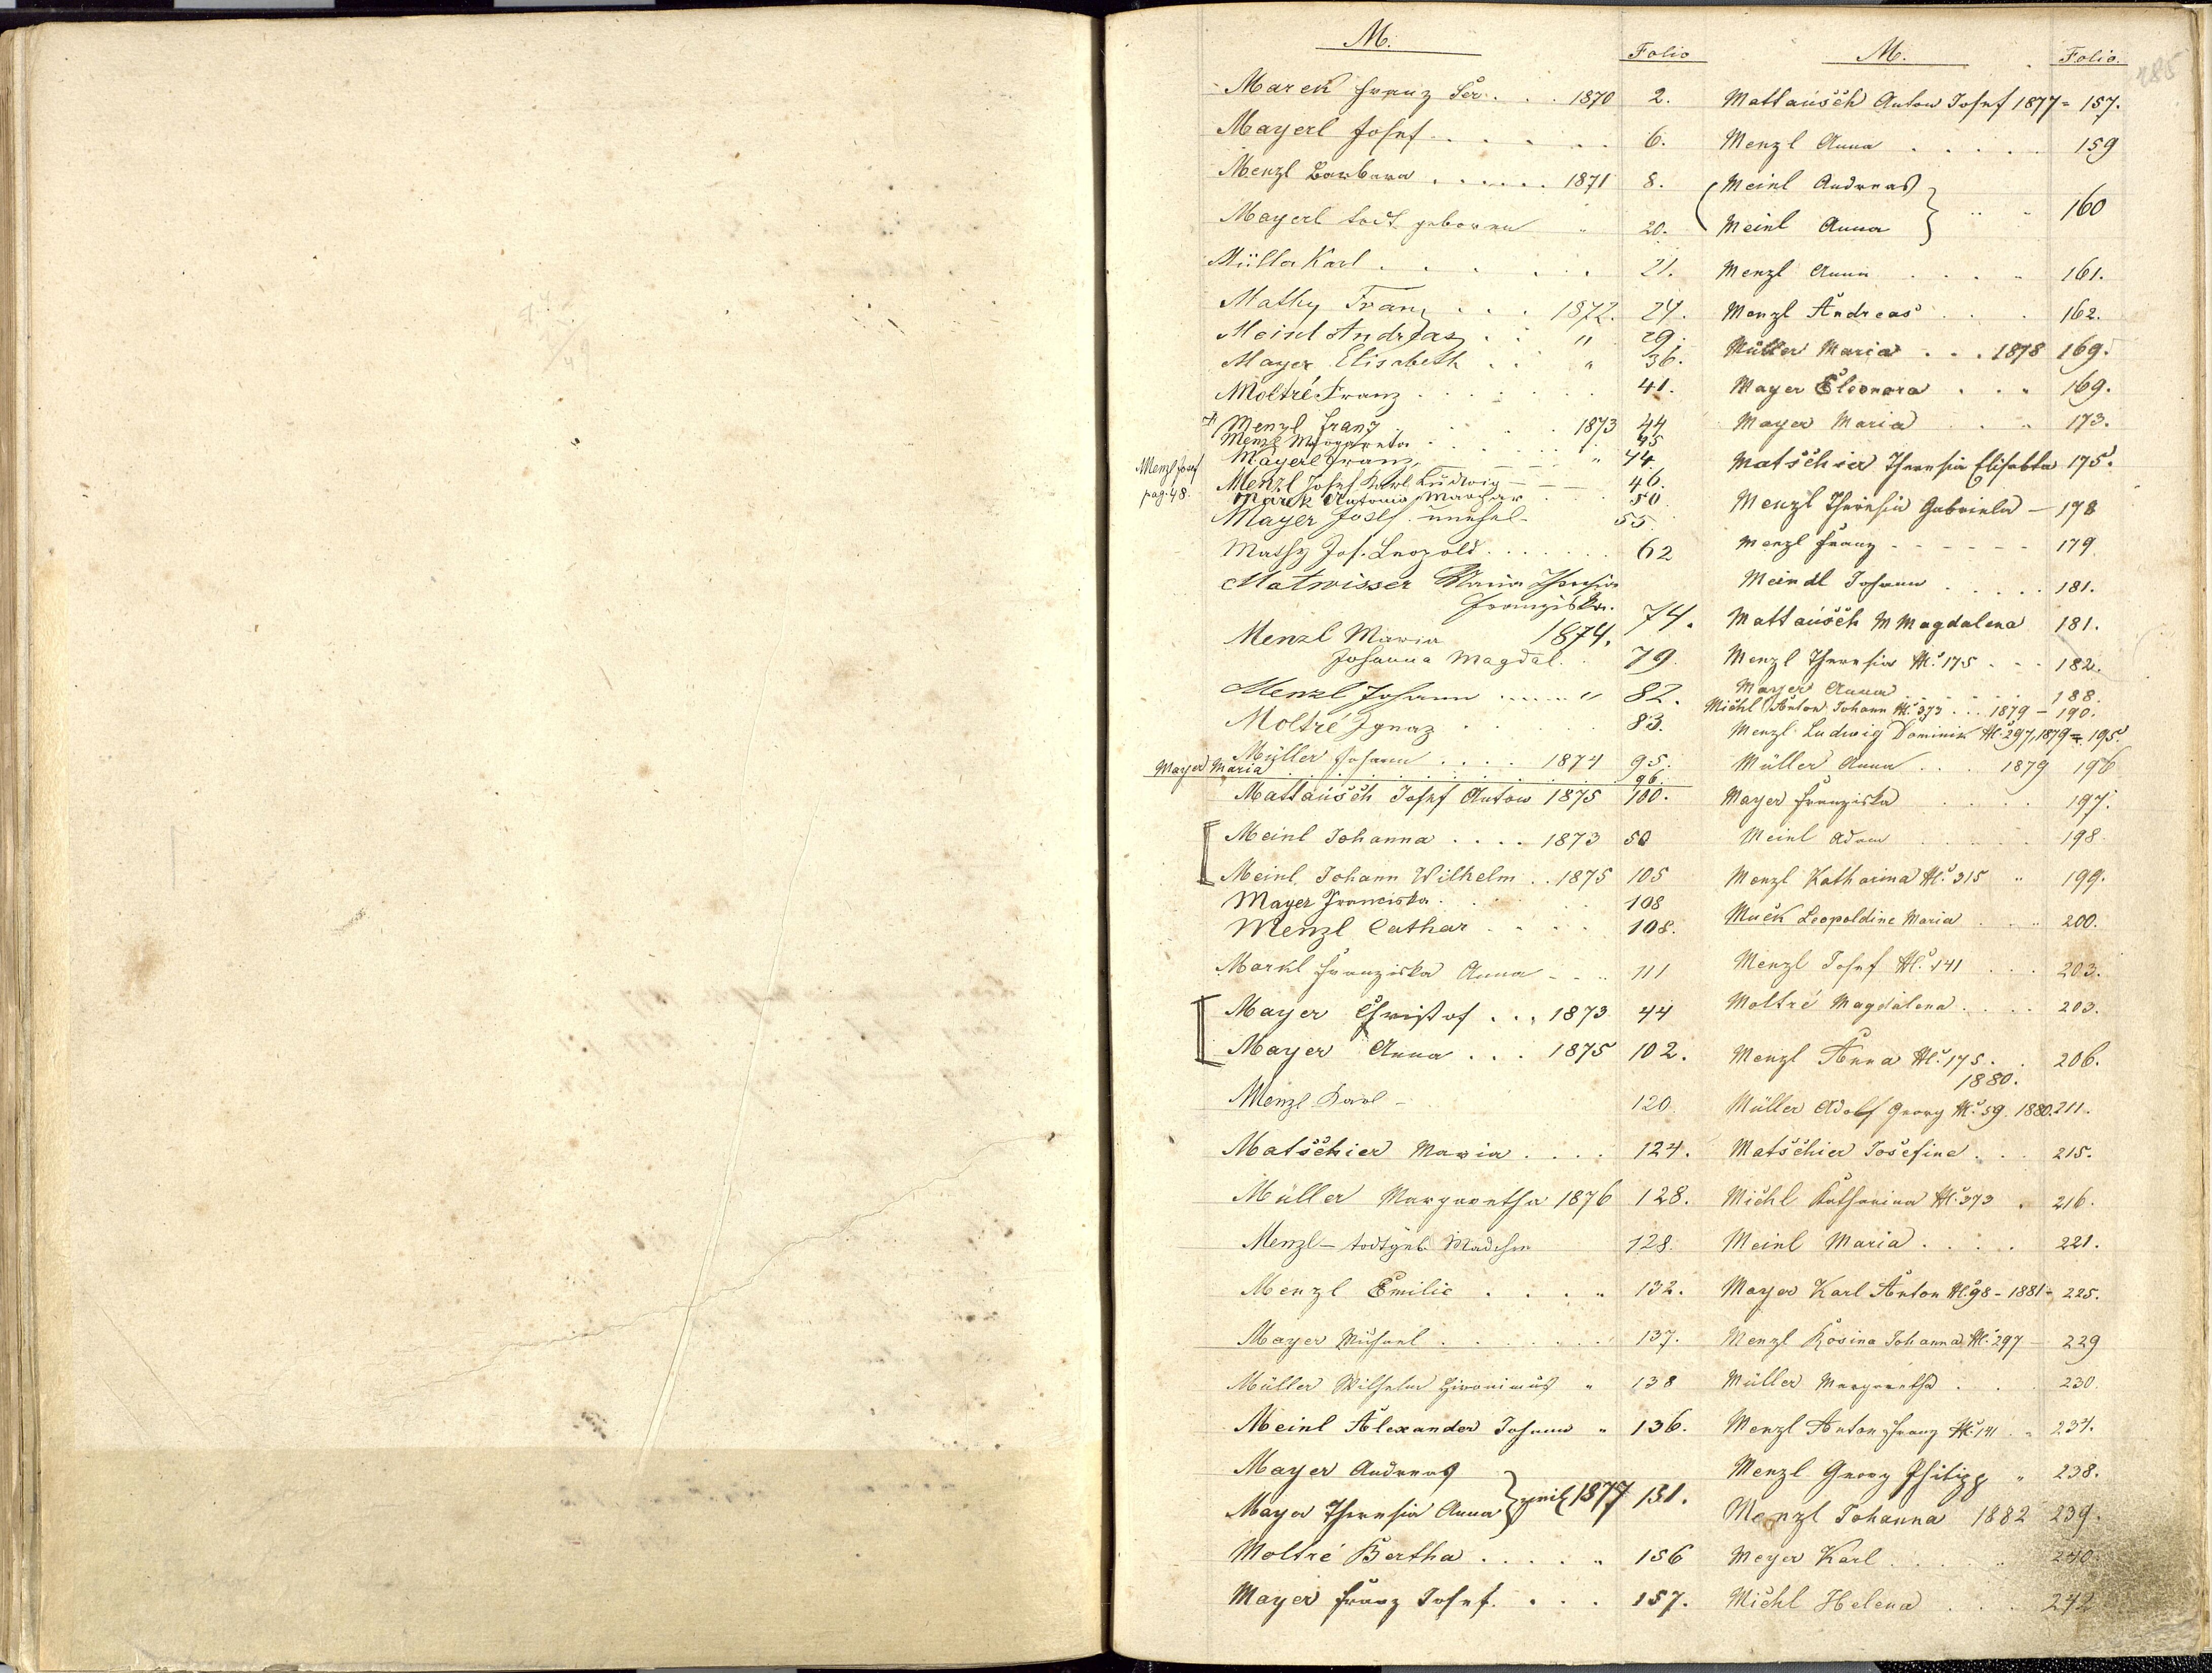 285
M.
Folio
Marek Franz Ser. . . 1870 2.
Mayerl Josef . . . . . 6.
Menzl Barbara . . . . . . 1871 8.
Mayerl todt geboren " 20.
Müller Karl . . . . . . 21.
Mathy Franz . . . 1872. 24.
Meinl Andreas . . " 29.
Mayer Elisabeth . . " 36.
Moltré Franz . . . . . . . 41.
Menzl Franz . . . . . 1873 44
Menzl Margaretha . . . . . . 45
Mayerl Franz " 44.
Menzl Josef
pag. 48.
Menzl Josef Karl Ludwig - - - 46.
Marek Antonia Margar . . . 50
Mayer Josef unehel- 55
Mathy Jos. Leopold . . . . . . 62
Matwisser Maria Theresia
Franziska. 74.
Menzl Maria 1874.
Johanna Magdal. . 79.
Menzl Johann . . . . . . " 82.
Moltré Ignaz . . . . . 83.
Müller Johann . . . . 1874 95.
Mayer Maria . . . . . . . . . . 96.
Mattausch Josef Anton 1875 100.
Meinl Johanna . . . . 1873 50
Meinl Johann Wilhelm . . 1875 105
Mayer Franciska . . . . . 108
Menzl Cathar . . . . 108.
Markl Franziska Anna - . . 111
Mayer Christof . . . 1873 44
Mayer Anna . . . 1875 102.
Menzl Karl - 120
Matschier Maria . . . . 124.
Müller Margaretha 1876 128.
Menzl - todtgeb. Mädchen 128.
Menzl Emilie . . . . " 132.
Mayer Michael . . . . . . . 137.
Müller Wilhelm Hironimus " 138
Meinl Alexander Johann " 136.
Mayer Andreas
Mayer Theresia Anna } 1877 151.
Moltré Bertha . . . . . " 156
Mayer Franz Josef . . . . 157.
M.
Folio.
Mattausch Anton Josef 1877 = 157.
Menzl Anna . . . . . 159
Meinl Andreas
Meinl Anna } " " 160
Menzl Anna . . . . " 161.
Menzl Andreas . . . 162.
Müller Maria . . . 1878 169.
Mayer Eleonora . . . 169.
Mayer Maria . . " 173.
Matschier Theresia Elisabetha 175.
Menzl Theresia Gabriela - 178
Menzl Franz - - - - - - 179
Meindl Johann . . . . . 181.
Mattausch M Magdalena 181.
Menzl Theresia N. 175 . . . 182.
Mayer Anna . . . . . . 188.
Michl Anton Johann N. 373 . . . 1879 - 190.
Menzl Ludwig Dominik N. 297, 1879 = 195.
Müller Anna . . . 1879 196
Mayer Franziska . . . . 197.
Meinl Adam . . . . . 198
Menzl Katharina N. 315 " 199.
Muck Leopoldine Maria . . " 200.
Menzl Josef N. 141 . . . 203.
Moltré Magdalena . . . . 203.
Menzl Anna N. 175. . 206.
1880.
Müller Adolf Georg N. 59. 1880. 211.
Matschier Josefine . . . 215.
Michl Katharina N. 373 . 216.
Meinl Maria . . . . 221.
Mayer Karl Anton N. 98 - 1881 - 225.
Menzl Rosina Johanna N. 297 - 229
Müller Margaretha . . . 230.
Menzl Anton Franz N. 141 . " 234.
Menzl Georg Philipp " 238.
Menzl Johanna 1882 239.
Meyer Karl . . . . " 240.
Michl Helena . . . 242